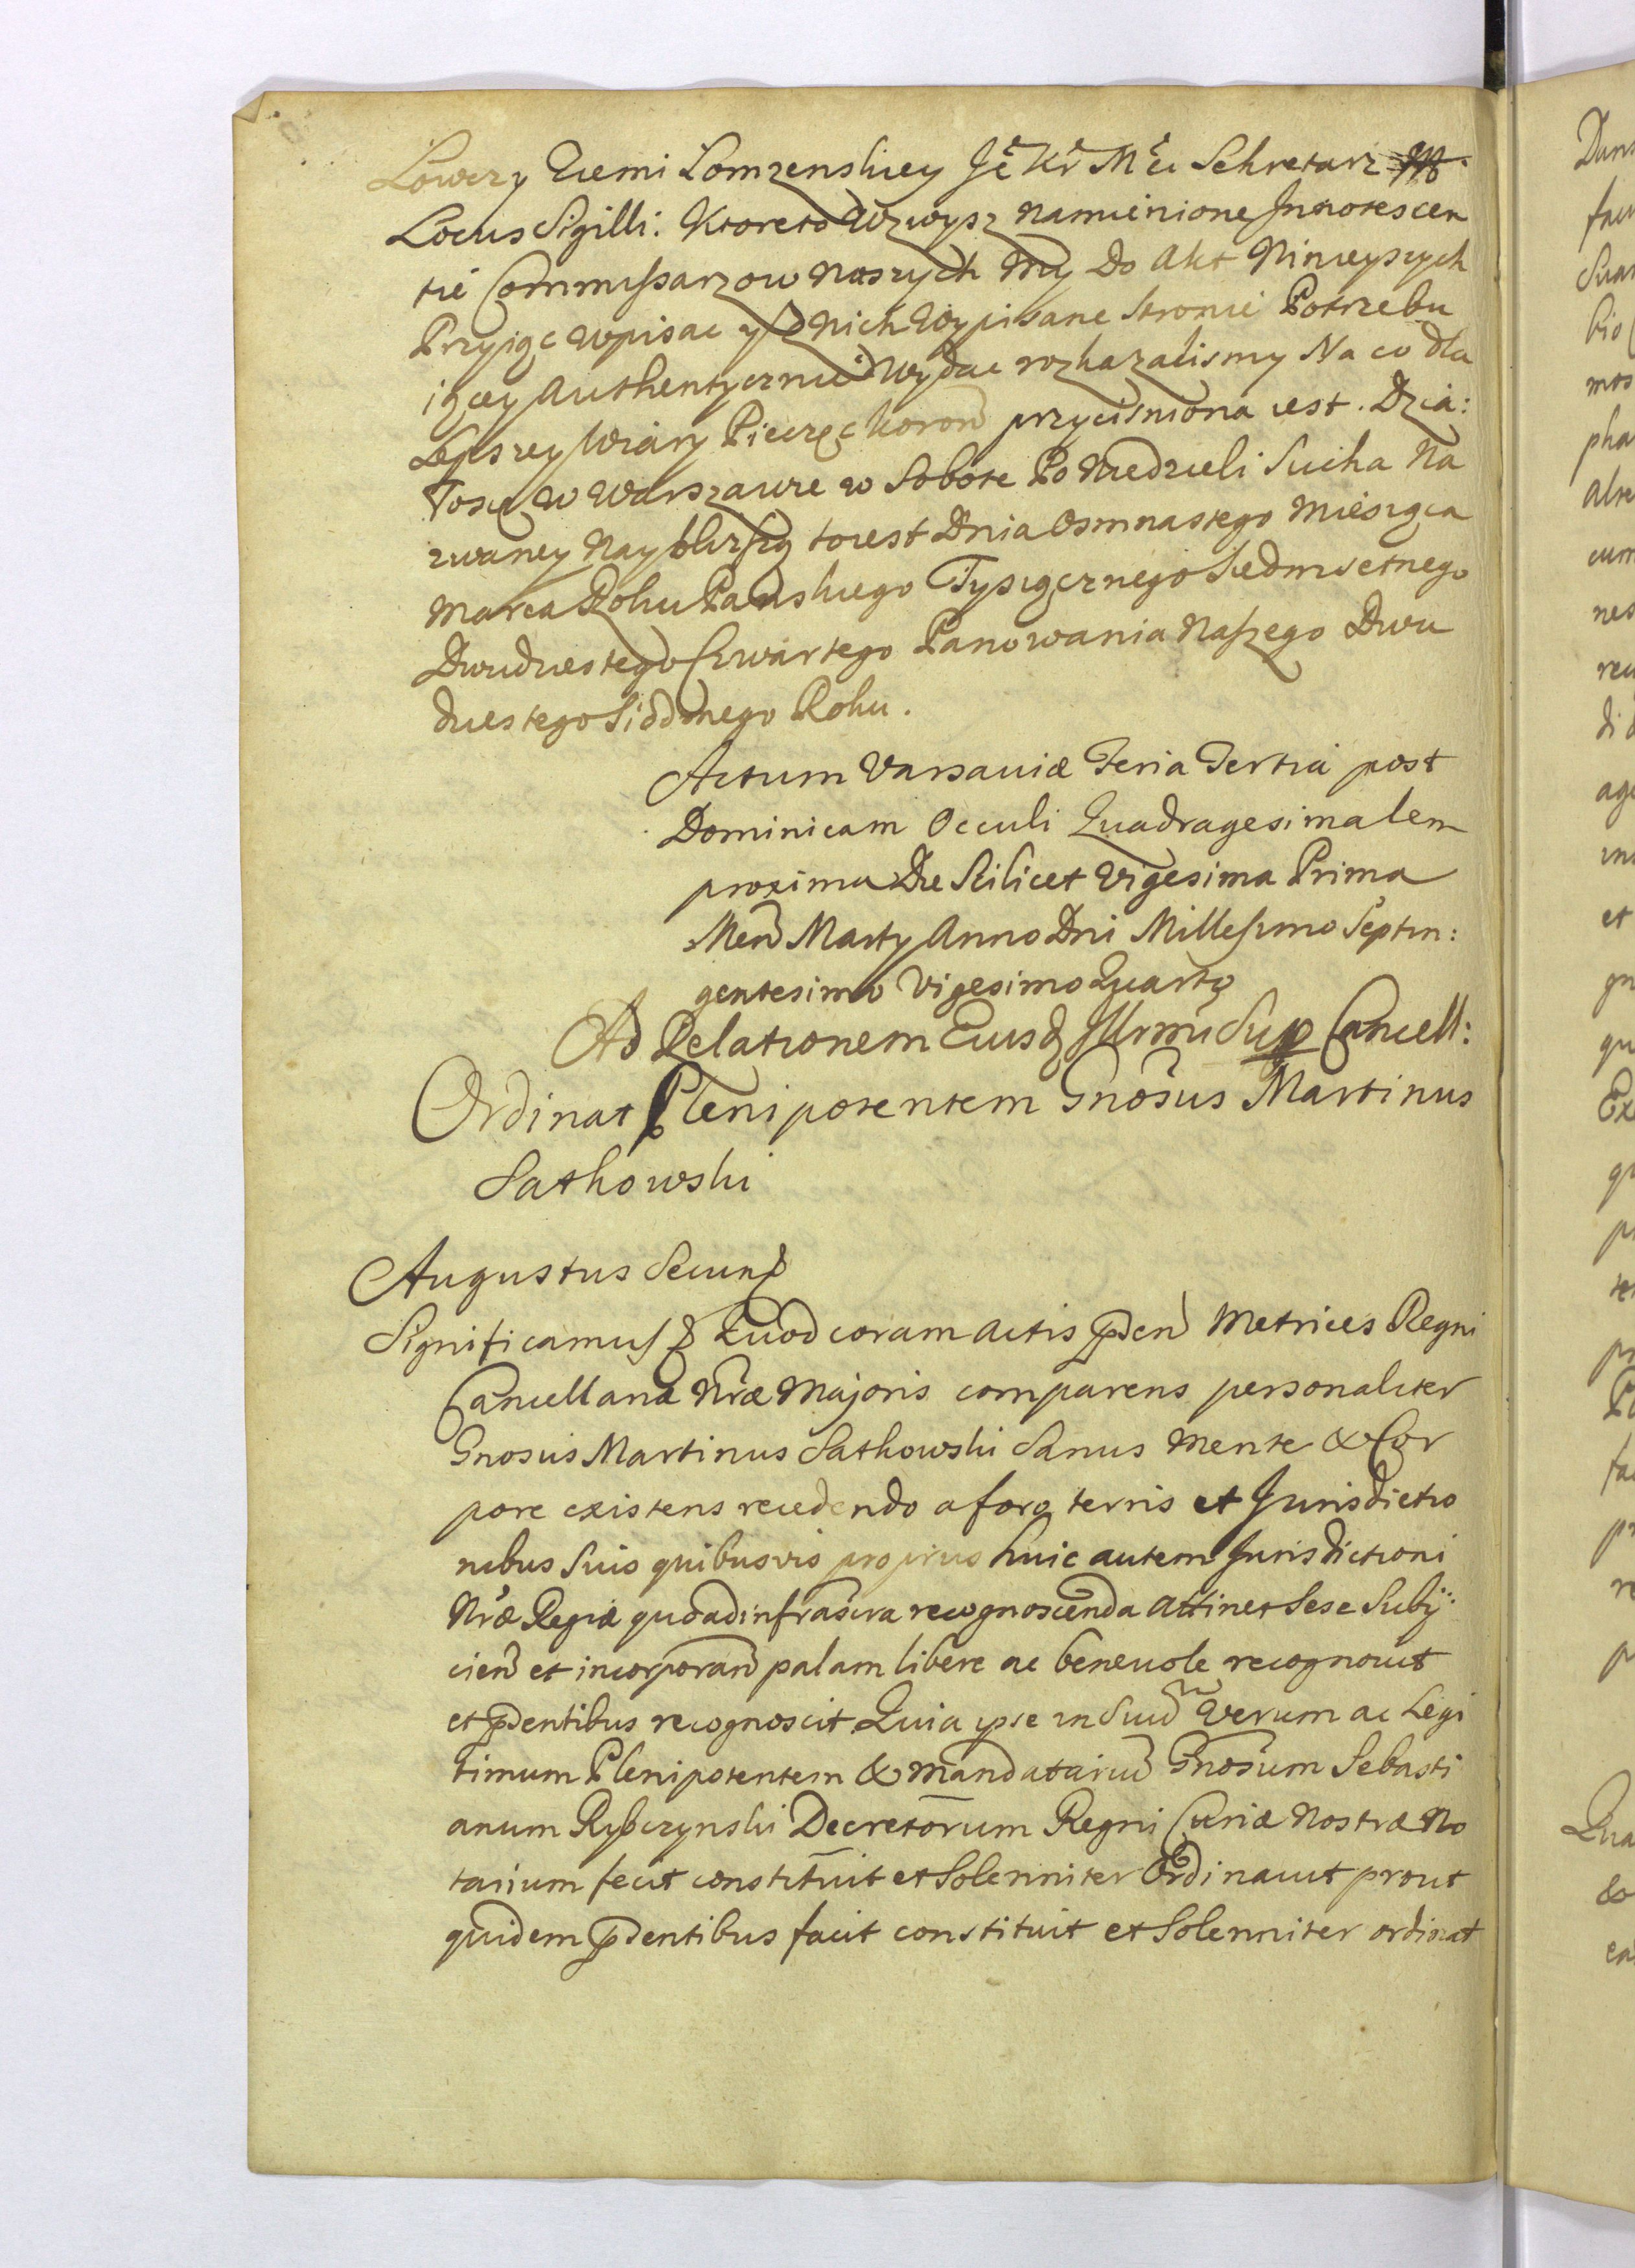 Łowczy Ziemi Łomzenskiey Je Kr Mci Sekretarz
Locus Sigilli: Ktoreto Wzwysz namienione Innotescen
tie Commissarzow naszych My Do Akt Ninieyszych
Przyiąc wpisac y z nich Wypisane stronie Potrzebu
iącey Authentycznie Wydac rozkazalismy Na co dla
Lepszey Wiary Pieczęc koron przycisniona iest. Dzia:
Łosię w Warszawie w Sobote Po Niedzieli Sucha Na
zwaney Nayblizszą toiest Dnia Osmnastego Miesiąca
Marca Roku Panskiego Tysiącznego Siedmsetnego
Dwudziestego Czwartego Panowania Naszego Dwu
dziestego Siodmego Roku.
Actum Varsaviæ Feria Tertia post
Dominicam Occuli Quadragesimalem
proxima Die Scilicet Vigesima Prima
Men Marty Anno Dni Millesimo Septin:
gentesimo Vigesimo Quarto
Ad Relationem Eiusd Illrmi Sup Cancell:
Ordinat Plenipotentem Gnosus Martinus
Satkowski
Augustus Secund
Significamus Quod coram Actis pden Metrices Regni
Cancellariæ Nræ Majoris comparens personaliter
Gnosus Martinus Satkowski Sanus Mente & Cor
pore existens recedendo a foro terris et Jurisdictio
nibus Suis quibusvis proprius huic autem Jurisdictioni
Nræ Regiæ quoad infrascra recognoscenda attinet Sese Subij:
cien et incorporan palam libere ac benevole recognovit
et pdentibus recognoscit Quia ipse in Suum Verum ac Legi
timum Plenipotentem & Mandatarium Gnosum Sebasti
anum Rybczynski Decretorum Regni Curiæ Nostræ No
tarium fecit constituit et Solenniter Ordinavit prout
quidem pdentibus facit constituit et Solenniter ordinat